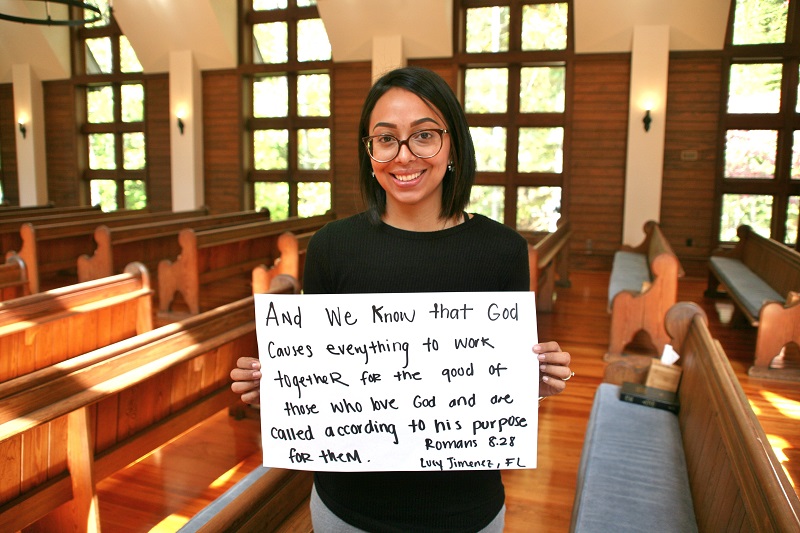 And We Know that God
Causes everything to work
togetheR for the good of
those who love God and are
called according to his purpose
for theM.
Romans 8:28
Lucy Jimenez, FL